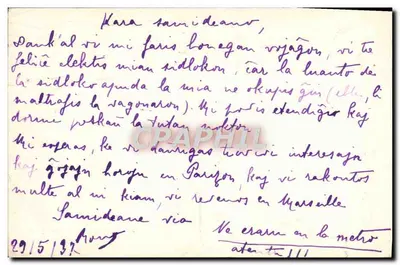 Kara samideano,
Dank'al vi mi faris bonegan vojaĝon, vi tre
feliĉe elektis mian sidlokon, ĉar la luanto de
la sidloko apuda la mia ne okupis ĝin (eble, li
maltrafis la vagonaron). Mi povis etendiĝi kaj
dormi preskaŭ la tutan nokton
Mi esperas, ke vi daŭrigas travivi interesajn
kaj ĝojajn horojn en Parizon, kaj vi rakontos
multe al ni kiam, vi revenos en Marseille
Samideane via
Ne eraru en la metro
29/5/37
atentu!!!
CPARHILL